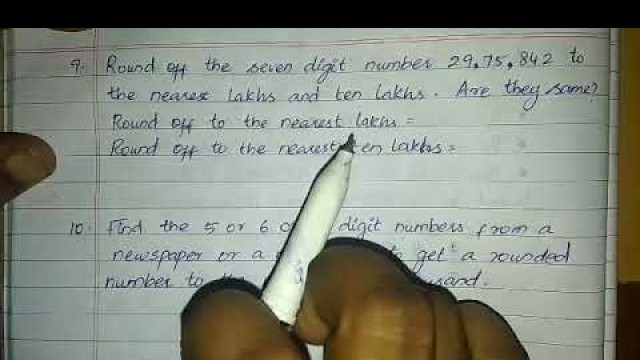 9. Round off the seven digit number 29,75,842 to
the nearest lakhs and ten lakhs. Are they same?
Round off to the nearest lakhs =
Round off to the nearest ten lakhs =
10. Find the 5 or 6 digit numbers from a
newspaper or a to get a rounded
number to the